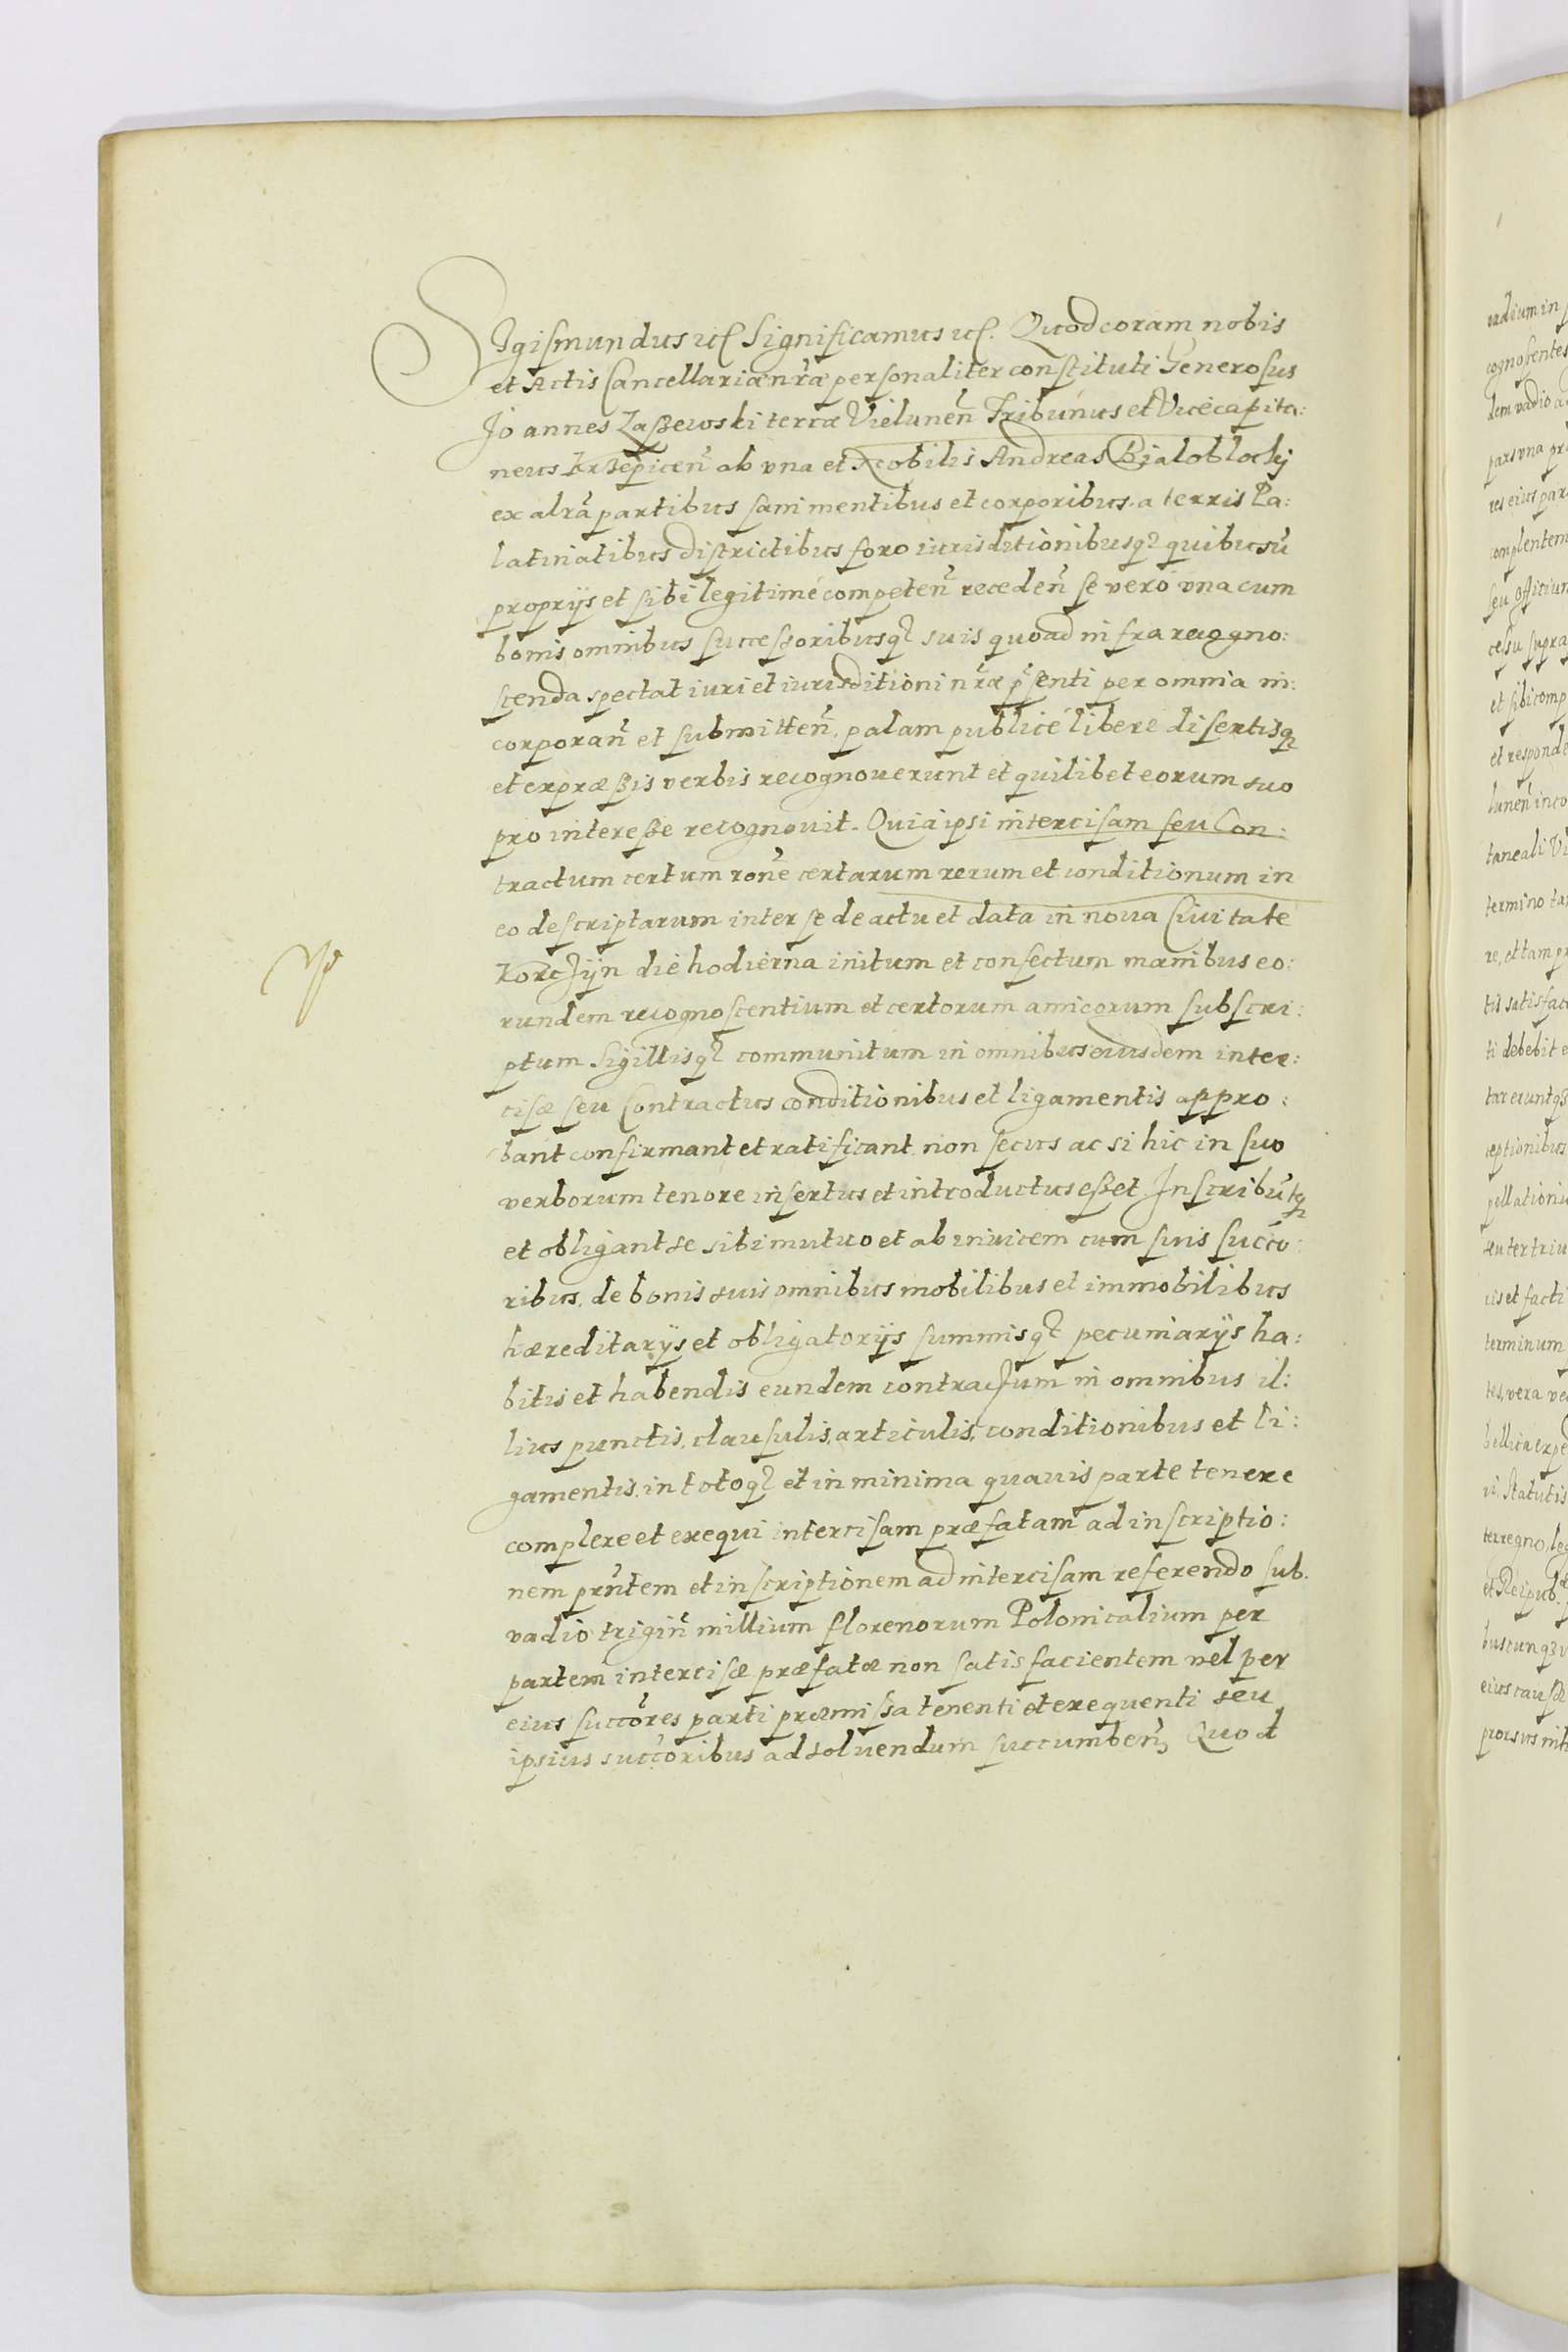 Sigismundus etc Significamus etc. Quod coram nobis
et Actis Cancellariæ nr̃æ personaliter constituti Generosus
Joannes Zaßewski terræ Vielunen̄ Tribunus et Vicecapita:
neus Krzepicen̄ ab vna et Nobilis Andreas Bialoblocky
ex alr̃a partibus sani mentibus et corporibus. a terris Pa:
latinatibus districtibus foro iurisditionibusq₃ quibusũ
proprijs et sibi legitimé competen̄ receden̄ se vero vna cum
bonis omnibus succeßoribusq₃ suis quoad infra recogno:
scenda spectat iuri et iurisditioni nr̃æ p̃senti per omnia in:
corporan̄ et submitten̄, palam publicé libere disertisq₃
et expræßis verbis recognouerunt et quilibet eorum suo
pro intereße recognouit. Quia ipsi intercisam seu Con:
tractum certum ron̄e certarum rerum et conditionum in
eo descriptarum inter se de actu et data in noua Ciuitate
Korczÿn die hodierna initum et confectum manibus eo:
rundem recognoscentium et certorum amicorum subscri:
ptum Sigillisq₃ communitum in omnibus eiusdem inter:
cisæ seu Contractus conditionibus et ligamentis appro:
bant confirmant et ratificant. non secus ac si hic in suo
verborum tenore insertus et introductus eßet. Inscribũtq₃
et obligant se sibi mutuo et ab inuicem cum suis succo:
ribus. de bonis suis omnibus mobilibus et immobilibus
hæreditarijs et obligatorijs summisq₃ pecuniarijs ha:
bitis et habendis eundem contractum in omnibus il:
lius punctis, clausulis, articulis, conditionibus et li:
gamentis. in totoq₃ et in minima quauis parte tenere
complere et exequi intercisam præfatam ad inscriptio:
nem prñtem et inscriptionem ad intercisam referendo sub.
vadio trigin̄ millium florenorum Polonicalium per
partem intercisæ præfatæ non satisfacientem vel per
eius succ̃ores parti præmißa tenenti et exequenti seu
ipsius succ̃oribus ad soluendum succumben̄, Quod